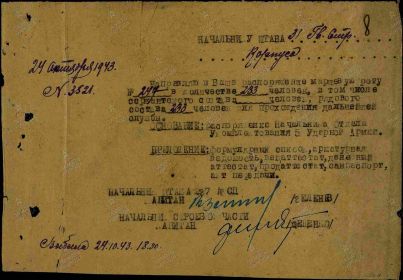 8
НАЧАЛЬНИКУ ШТАБА 31 Гв. Стр.
Корпуса
24 октября 1943.
N 3521.
Направляю в Ваше распоряжение маршевую роту
№ 247 в количестве 233 человек, в том числе
сержантского состава человек, рядового
состава 233 человек для прохождения дальнейшей
службы.
ОСНОВАНИЕ: Распоряжение Начальника Отдела
Укомплектования 5 Ударной Армии.
ПРИЛОЖЕНИЕ: формулярный список, арматурная
ведомость, вещаттестат, денежный
аттестат, продаттестат, санпаспорт,
акт передачи.
НАЧАЛЬНИК ШТАБА СП
КАПИТАН
НАЧАЛЬНИК СТРОЕВОЙ ЧАСТИ
КАПИТАН
24.10.43 18.30